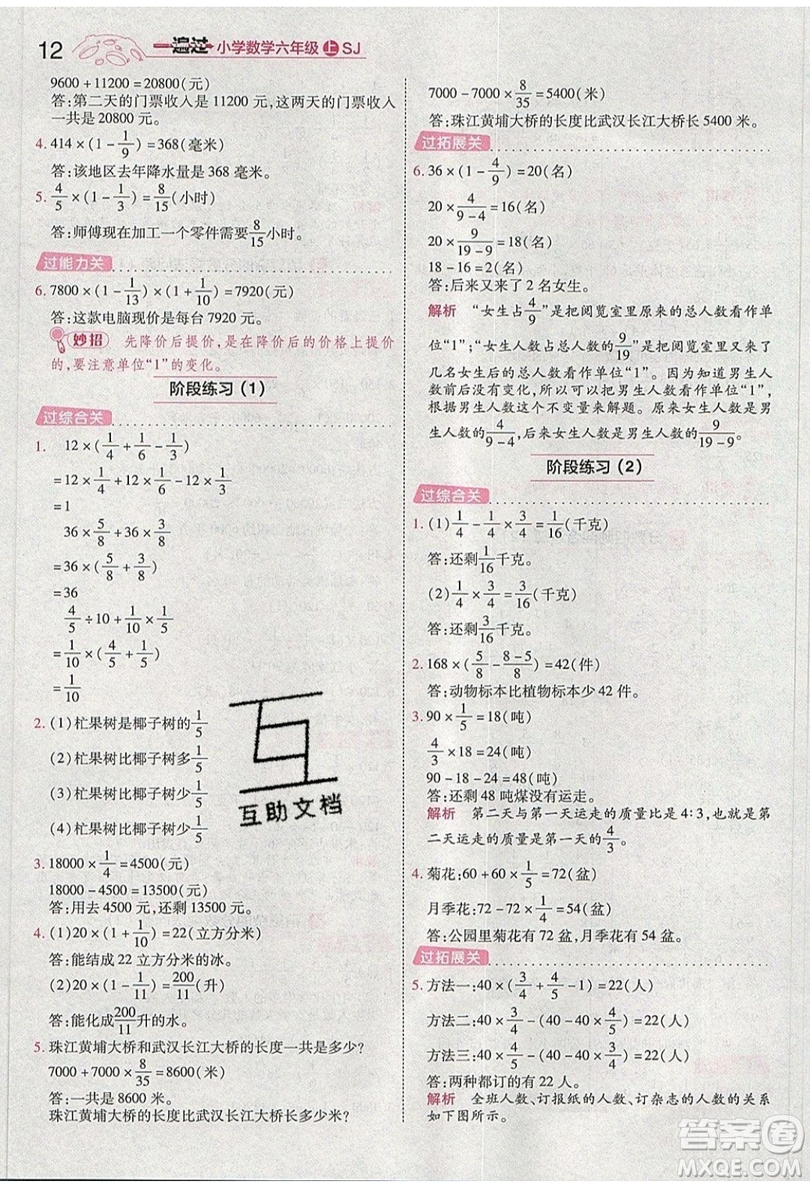 12 一遍过 小学数学六年级 上 SJ
9600+11200=20800(元)
答:第二天的门票收入是 11200 元,这两天的门票收入
一共是 20800 元。
4. 414×(1-1/9)=368(毫米)
答:该地区去年降水量是 368 毫米。
5. 4/5×(1-1/3)=8/15(小时)
答:师傅现在加工一个零件需要8/15小时。
过能力关
6. 7800×(1-1/13)×(1+1/10)
答:这款电脑现价是每台 7920 元。
妙招 先降价后提价,是在降价后的价格上提价,
要注意单位“1”的变化。
阶段练习(1)
过综合关
1. 12×(1/4+1/6-1/3)
=12×1/4+12×1/6-12×1/3
=1
36×5/8+36×3/8
=36×(5/8+3/8)
=36
4/5÷10+1/10×1/5
=1/10×(4/5+1/5)
=1/10
2. (1)杧果树是椰子树的1/5
(2)杧果树比椰子树多1/5
(3)杧果树比椰子树少1/5
(4)杧果树比椰子树少1/5
3. 18000×1/4=4500(元)
18000-4500=13500(元)
答:用去 4500 元,还剩 13500 元。
4. (1)20×(1+1/10)=22(立方分米)
答:能结成 22 立方分米的冰。
(2)20×(1-1/11)=200/11(升)
答:能化成200/11升的水。
5. 珠江黄埔大桥和武汉长江大桥的长度一共是多少?
7000+7000×8/35=8600(米)
答:一共是 8600 米。
珠江黄埔大桥的长度比武汉长江大桥长多少米?
7000-7000×8/35=5400(米)
答:珠江黄埔大桥的长度比武汉长江大桥长 5400 米。
过拓展关
6. 36×(1-4/9)=20(名)
20×4/(9-4)=16(名)
20×9/(19-9)=18(名)
18-16=2(名)
答:后来又来了 2 名女生。
解析 “女生占4/9”是把阅览室里原来的总人数看作单
位“1”;“女生人数占总人数的9/19”是把阅览室里又来了
几名女生后的总人数看作单位“1”。因为知道男生人
数前后没有变化,所以可以把男生人数看作单位“1”,
根据男生人数这个不变量来解题。原来女生是男生人
数的4/(9-4),后来女生人数是男生人数的9/(19-9)。
阶段练习(2)
过综合关
1. (1)1/4-1/4×3/4=1/16(千克)
答:还剩1/16千克。
(2)1/4×3/4=3/16(千克)
答:还剩3/16千克。
2. 168×(5/8-(8-5)/8)=42(件)
答:动物标本比植物标本少 42 件。
3. 90×1/5=18(吨)
4/3×18=24(吨)
90-18-24=48(吨)
答:还剩 48 吨煤没有运走。
解析 第二天与第一天运走的质量比是 4:3,也就是第
二天运走的质量是第一天的4/3。
4. 菊花:60+60×1/5=72(盆)
月季花:72×3/4=54(盆)
答:公园里菊花有 72 盆,月季花有 54 盆。
过拓展关
5. 方法一:40×(3/4+4/5-1)=22(人)
方法二:40×3/4-(40-40×4/5)=22(人)
方法三:40×4/5-(40-40×3/4)=22(人)
答:两种都订的有 22 人。
解析 全班人数、订报纸的人数、订杂志的人数的关系
如下图所示。
互
互助文档
答案圈
MXQE.COM